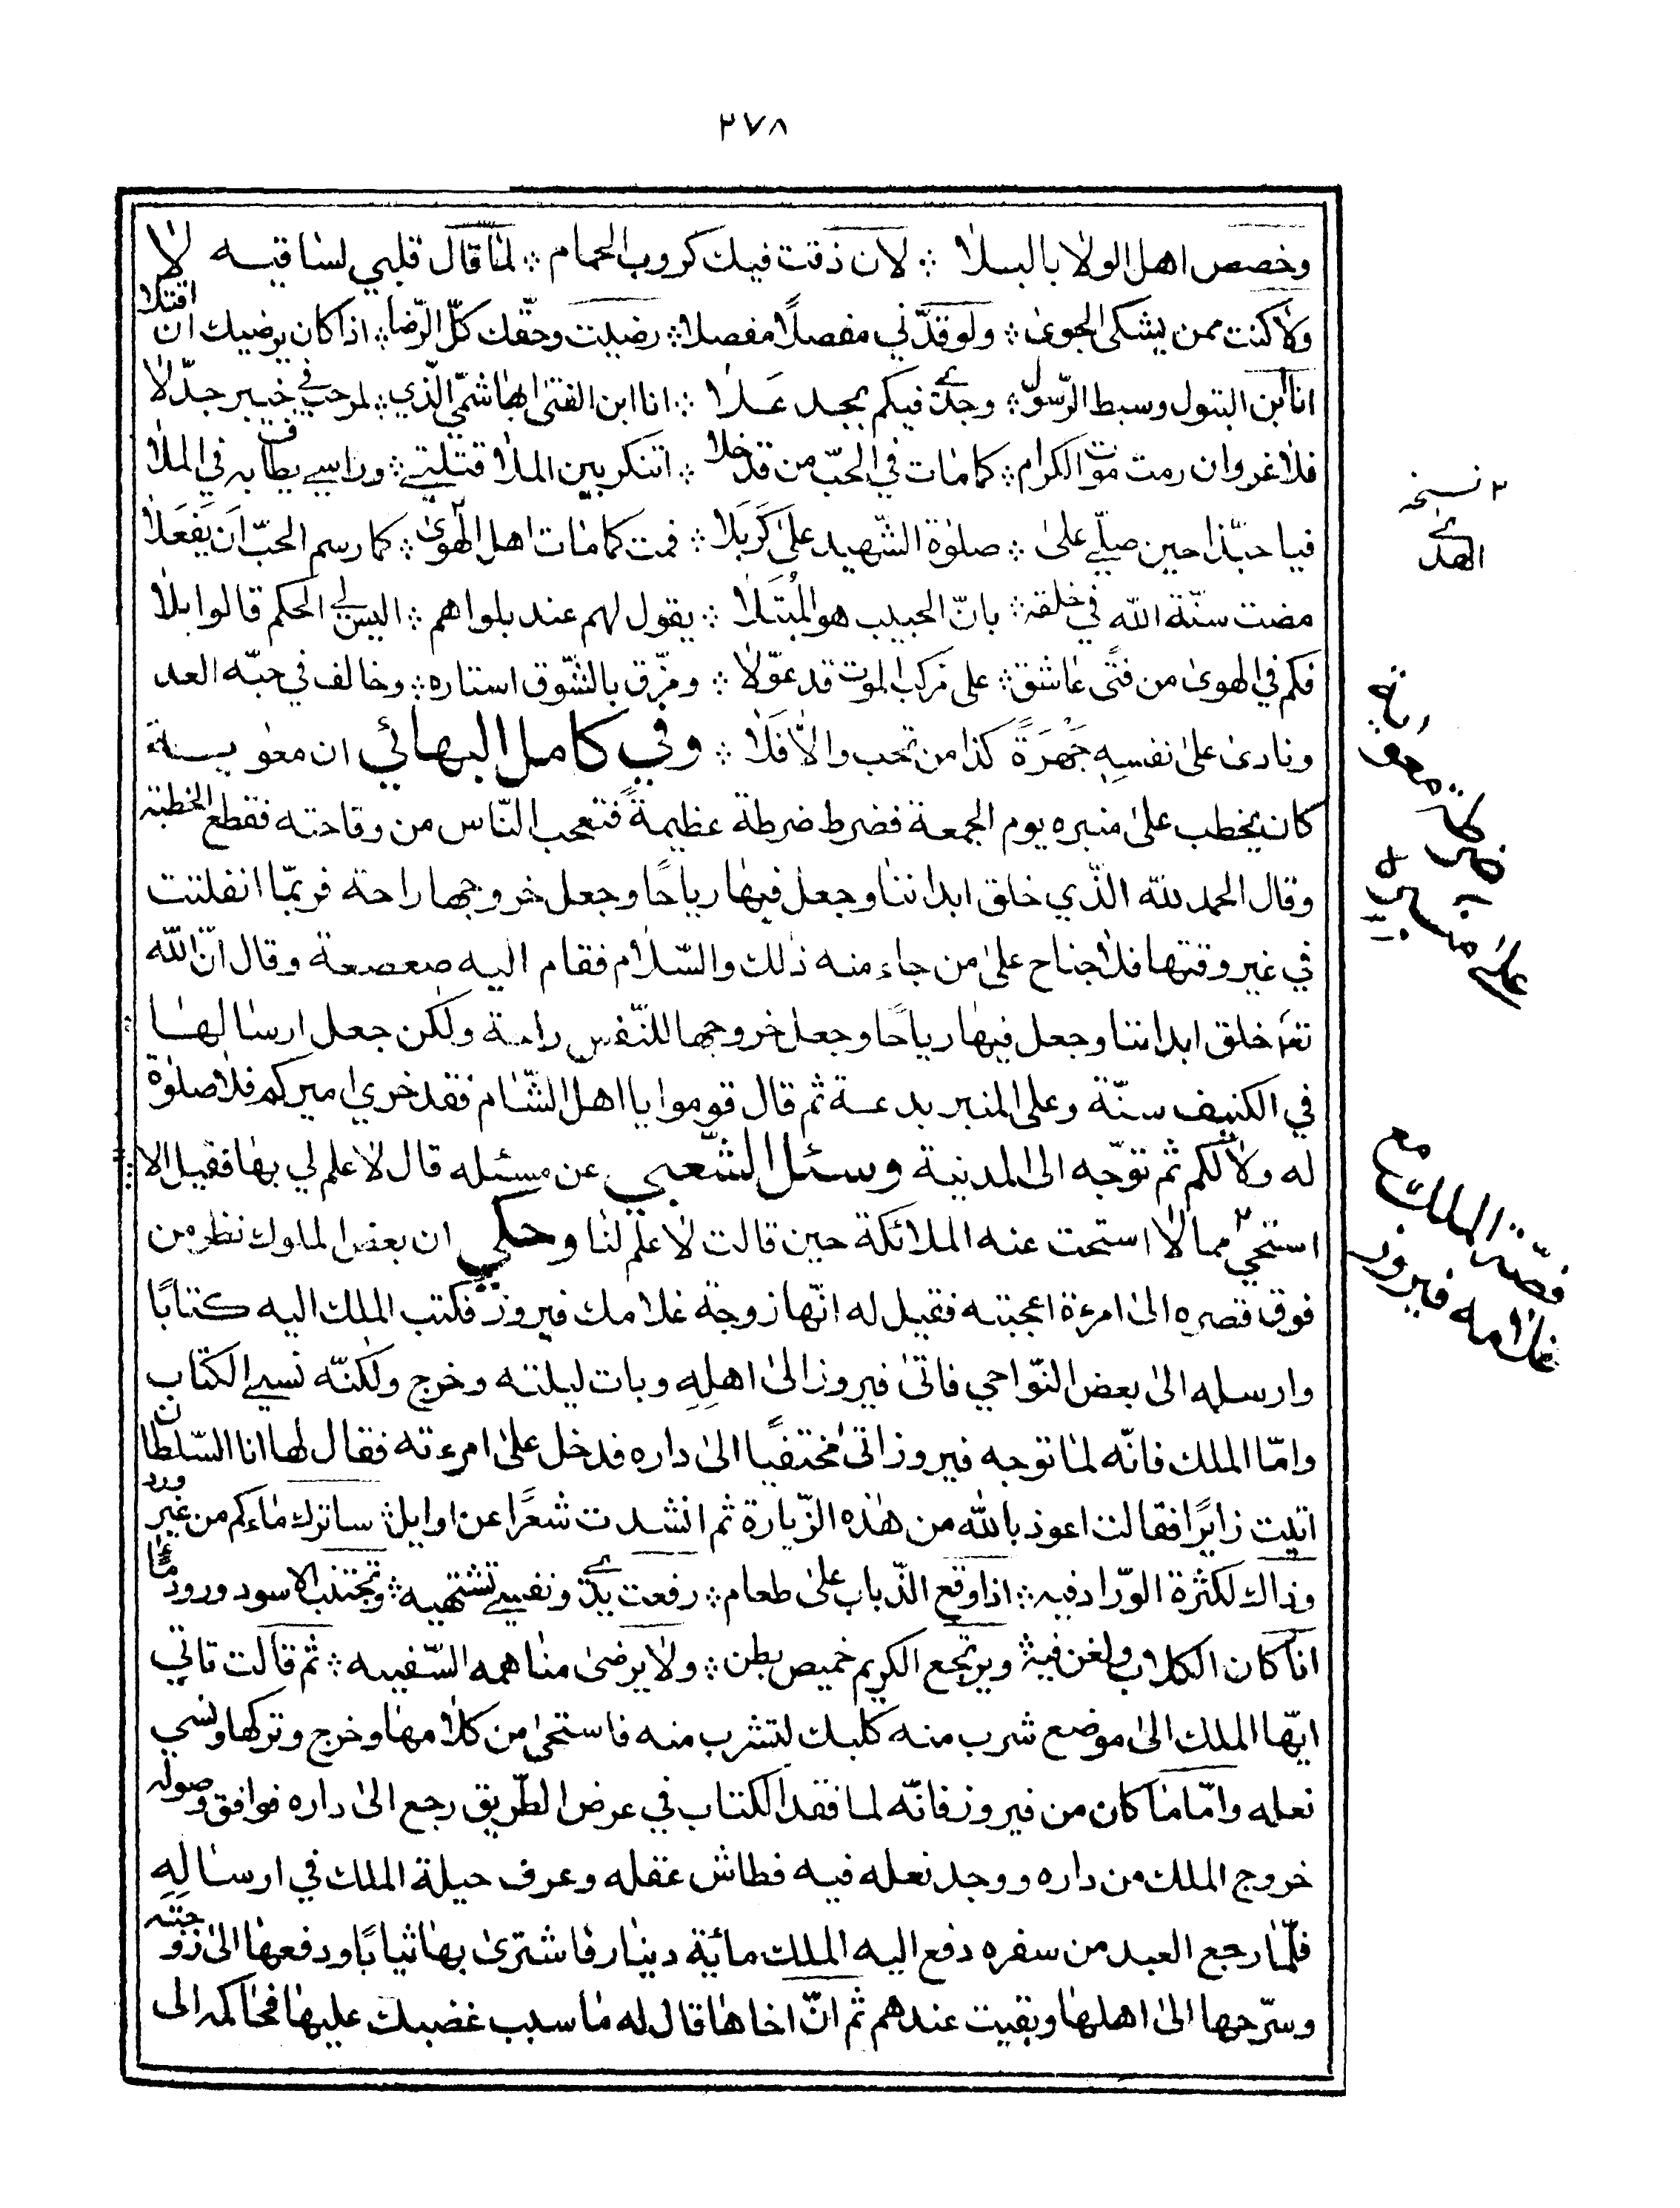 ٢٧٨
وخصص اهل الولا بالبلا ∴ لان ذقت فيك كروب الحمام ∴ لما قال قلبي لساقيه لا
ولا كنت ممن يشكى الجوى ∴ ولو قدّني مفصلًا مفصلا ∴ رضيت وحقّك كلّ الرّضا ∴ اذا كان يرضيك ان اقتلا
انا ابن البتول وسبط الرّسول ∴ وجدّي فيكم بمجد عَلا ∴ انا ابن الفتى الهاشميّ الّذي ∴ لمرحب في خيبر جدّلا
فلا غروان رمت موت الكرام ∴ كما مات في الحبّ من قد خلا ∴ اتنكر بين الملا قتلتي ∴ وراسي يطاف به في الملا
فيا حبّذا حين صلّي على ∴ صلوة الشّهيد على كَرْبَلا ∴ فمت كما مات اهل الهوى٢ ∴ كما رسم الحبّ اَن يَفعَلا
مضت سنّة اللّه في خلقه ∴ بانّ الحبيب هو المُبتَلا ∴ يقول لهم عند بلواهم ∴ اليس لي الحكم قالوا بلا
فكم في الهوى من فتًى عاشق ∴ على مركب الموت قد عوّلا ∴ ومزّق بالشّوق استاره ∴ وخالف في حبّه العد
ونادى على نفسهِ جَهْرَةً كذا من تحب والّا فَلا ∴ وفي كامل البهائي ان معوية
كان يخطب على منبره يوم الجمعة فضرط ضرطة عظيمة فتعجب النّاس من وقاحته فقطع الخطبة
وقال الحمد للّه الّذي خلق ابداننا وجعل فيها رياحًا وجعل خروجها راحة فربّما انفلتت
في غير وقتها فلا جناح على من جاء منه ذلك والسّلام فقام اليه صعصعة وقال انّ اللّه
تعه خلق ابداننا وجعل فيها رياحًا وجعل خروجها للنّفس راحة ولكن جعل ارسالها
في الكنيف سنّة وعلى المنبر بدعة ثم قال قوموا يا اهل الشّام فقد خري اميركم فلا صلوة
له ولا لكم ثم توّجه الى المدنية وسئل الشّعبي عن مسئله قال لا علم لي بها فقيل الا
استحيي مما لا استحت عنه الملائكة حين قالت لا علم لنا وحكي ان بعض الملوك نظر من
فوق قصره الى امرءة اعجبته فقيل له انّها زوجة غلامك فيروز فكتب الملك اليه كتابًا
وارسله الى بعض النّواحي فاتى فيروز الى اهلِهِ وبات ليلته وخرج ولكنّه نسي الكتاب
وامّا الملك فانّه لما توجه فيروز اتى مختفيًا الى داره فدخل على امرءته فقال لها انا السّلطان
اتيت زايرًا فقالت اعوذ باللّه من هذه الزّيارة ثم انشدت شعرًا عن اوايل ∴ ساترك ماءكم من غير ورد
وذاك لكثرة الورّاد فيه ∴ اذا وقع الذّباب على طعام ∴ رفعت يدي ونفسي تشتهيه ∴ وتجتنب الاسود ورود ماء
اذا كان الكلاب ولغن فيه ∴ ويرتجع الكريم خميص بطن ∴ ولا يرضى مناهمه السّفيه ∴ ثم قالت تاتي
ايّها الملك الى موضع شرب منه كلبك لتشرب منه فاستحى من كلامها وخرج وتركها ونسي
نعله وامّا ما كان من فيروز فانّه لما فقد الكتاب في عرض الطّريق رجع الى داره فوافق وصوله
خروج الملك من داره ووجد نعله فيه فطاش عقله وعرف حيلة الملك في ارسالِهِ
فلمّا رجع العبد من سفره دفع اليه الملك مائة دينار فاشترى بها ثيابًا ودفعها الى زوجته
وسرّحها الى اهلها وبقيت عندهم ثم انّ اخاها قال له ما سبب غضبك عليها فحاكمه الى
٢ نسخه
الهدي
ضرطة معوية
على منبره
قصّة الملك مع
غلامه فيروز